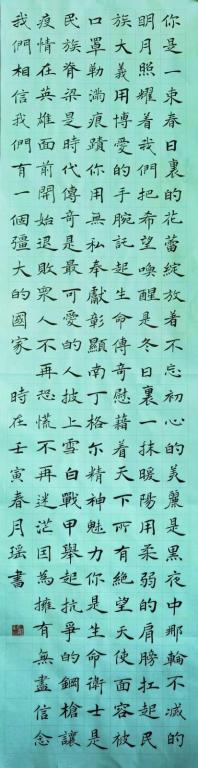 你是一束春日裏的花蕾綻放着不忘初心的美麗是黑夜中那輪不滅的
明月照耀着我們把希望喚醒是冬日裏一抹暖陽用柔弱的肩膀扛起民
族大義用博愛的手腕託起生命傳奇慰藉着天下所有絕望天使面容被
口罩勒滿痕蹟你用無私奉獻彰顯南丁格尔精神魅力你是生命衛士是
民族脊梁是時代傳奇是最可愛的人披上雪白戰甲舉起抗爭的鋼槍讓
疫情在英雄面前開始退敗眾人不再恐慌不再迷茫因為擁有無盡信念
我們相信我們有一個疆大的國家 時在壬寅春月瑶書